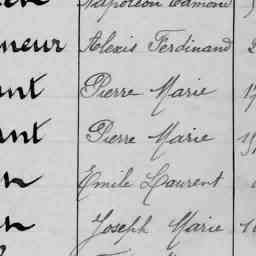 Napoléon Edmond
neur Alexis Ferdinand
ant Pierre Marie
ant Pierre Marie
Emile Laurent
Joseph Marie